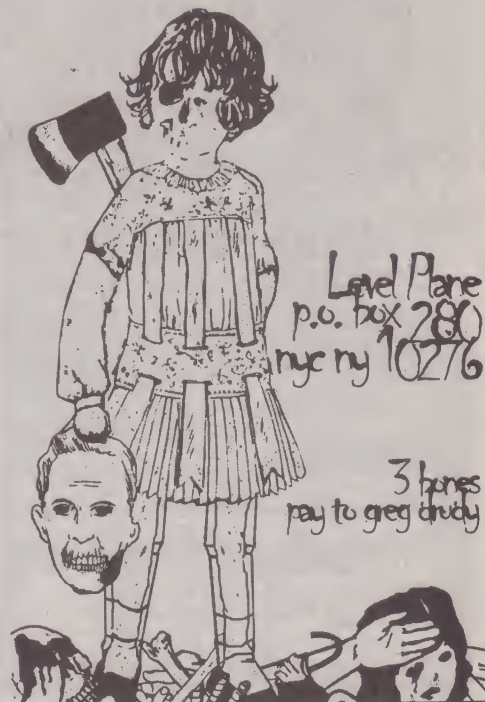 Level Plane
p.o. box 280
nyc ny 10276
3 bones
pay to greg drudy